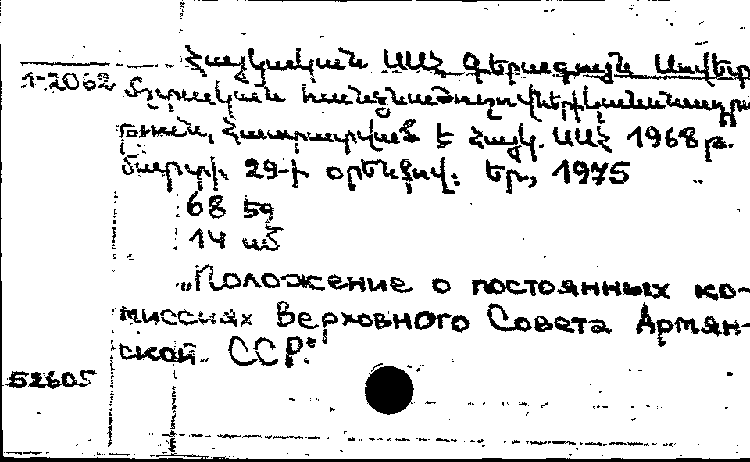 Հայկական ՍՍՀ Գերագույն Սովետի
1-2062
մշտական հանձնաժողովների կանոնադրու
թյուն, հաստատված է Հայկ. ՍՍՀ 1968 թ.
մարտի 29-ի օրենքով: Եր., 1975
68 էջ
14 սմ
„Положение о постоянных ко-
миссиях Верховного Совета Армян-
ской ССР."
52605